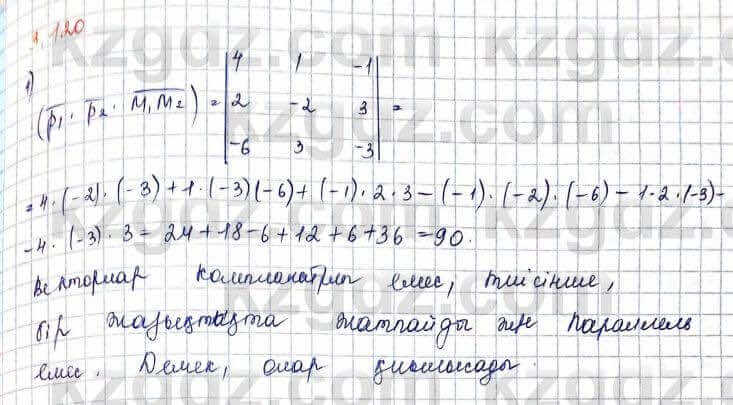 1.120
1)
(p₁ · p₂ · M₁M₂) = | 4 1 -1 |
| 2 -2 3 | =
| -6 3 -3 |
= 4 · (-2) · (-3) + 1 · (-3)(-6) + (-1) · 2 · 3 - (-1) · (-2) · (-6) - 1 · 2 · (-3) -
- 4 · (-3) · 3 = 24 + 18 - 6 + 12 + 6 + 36 = 90.
Векторлар компланатры емес, тиісінше,
бір жазықтықта жатпайды және параллель
емес. Демек, олар қиылысады.
kzgdz.com